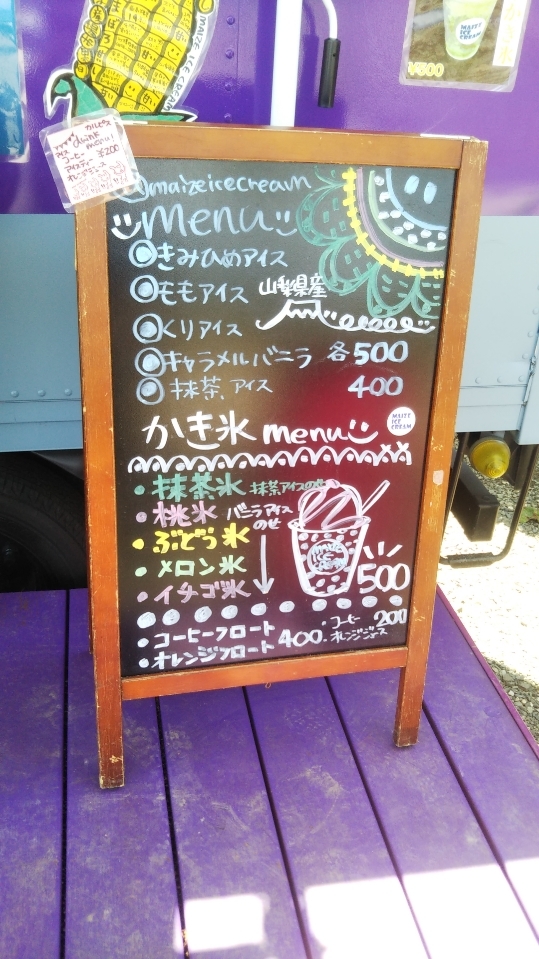 MAIZE ICE CREAM
MAIZE
ICE
CREAM
¥500
カルピス
drink
menu!
アイス
コーヒー ¥200
アイスティー
オレンジジュース
@maizeicecream
menu
きみひめアイス
ももアイス 山梨県産
くりアイス
キャラメルバニラ 各500
抹茶アイス 400
かき氷 menu
MAIZE
ICE
CREAM
・抹茶氷 抹茶アイスのせ
・桃氷 バニラアイス
のせ
・ぶどう氷
・メロン氷
・イチゴ氷
MAIZE
ICE
CREAM
500
・コーヒーフロート 400
・オレンジフロート
・コーヒー 200
・オレンジジュース